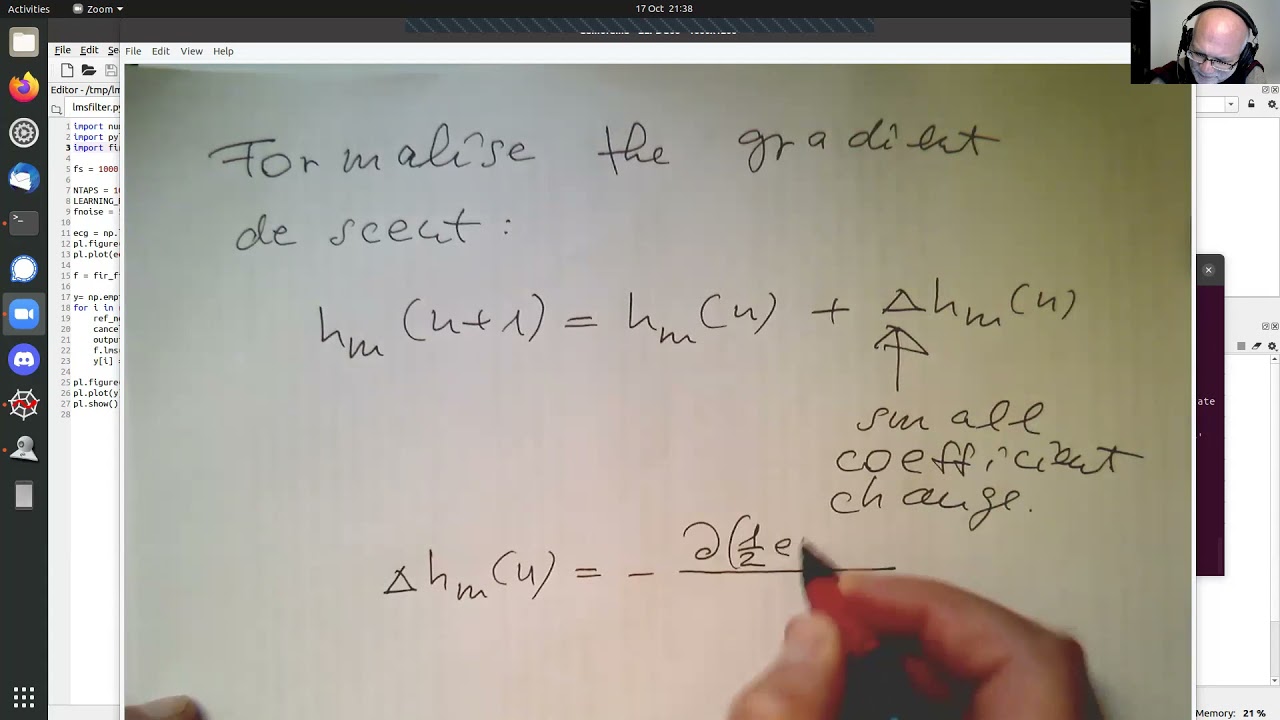 Activities
Zoom
17 Oct 21:38
File Edit Se
File Edit View Help
Editor - /tmp/lm
lmsfilter.py
1 import nu
2 import py
3 import fi
4
5 fs = 1000
6
7 NTAPS = 10
8 LEARNING_R
9 fnoise =
10
11 ecg = np.
12 pl.figure
13 pl.plot(e
14
15 f = fir_f
16
17 y= np.emp
18 for i in
19 ref_no
20 cance
21 output
22 f.lms
23 y[i] =
24
25 pl.figure
26 pl.plot(y
27 pl.show()
28
Formalise the gradient
descent:
hₘ(n+1) = hₘ(n) + Δhₘ(n)
small
coefficient
change.
Δhₘ(n) = - ∂(1/2 e
ate
Memory: 21 %